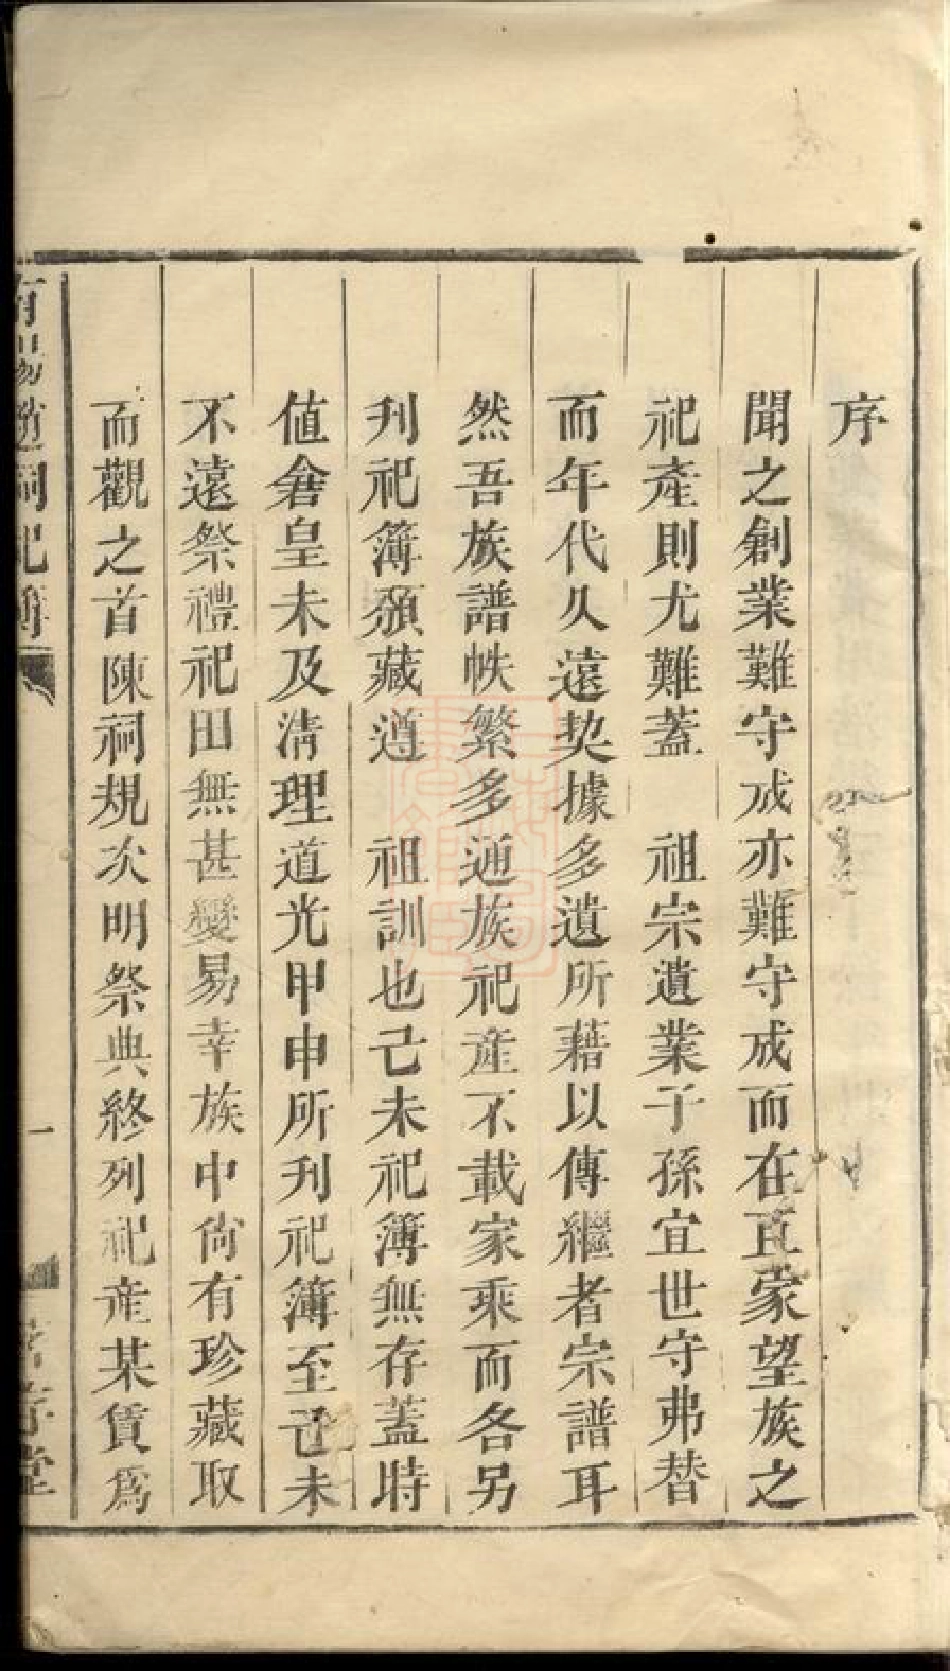 序
聞之創業難守成亦難守成而在巨家望族之
祀產則尤難蓋　祖宗遺業子孫宜世守弗替
而年代久遠契據多遺所藉以傳繼者宗譜耳
然吾族譜帙繁多通族祀產不載家乘而各另
刋祀簿頒藏遵　祖訓也己未祀簿無存蓋時
值倉皇未及清理道光甲申所刋祀簿至己未
不遠祭禮祀田無甚變易幸族中尙有珍藏取
而觀之首陳祠規次明祭典終列祀產某賃爲
暨陽趙祠祀簿
一
孝堂